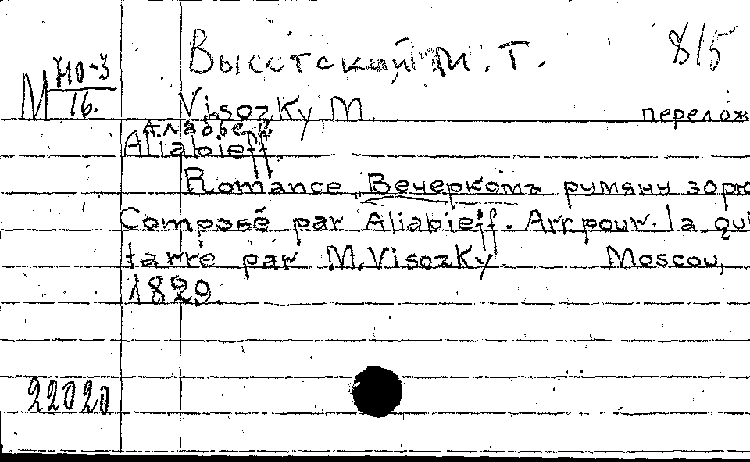 Высотский, М. Т. 815
М 710-3
16.
Visozky M
перелож
Алябьев
Aliabieff.
Romance „Вечеркомъ румяну зорю
Composé par Aliabieff. Arr. pour la qui
tarre par M. Visozky. Moscou,
1829.
22020